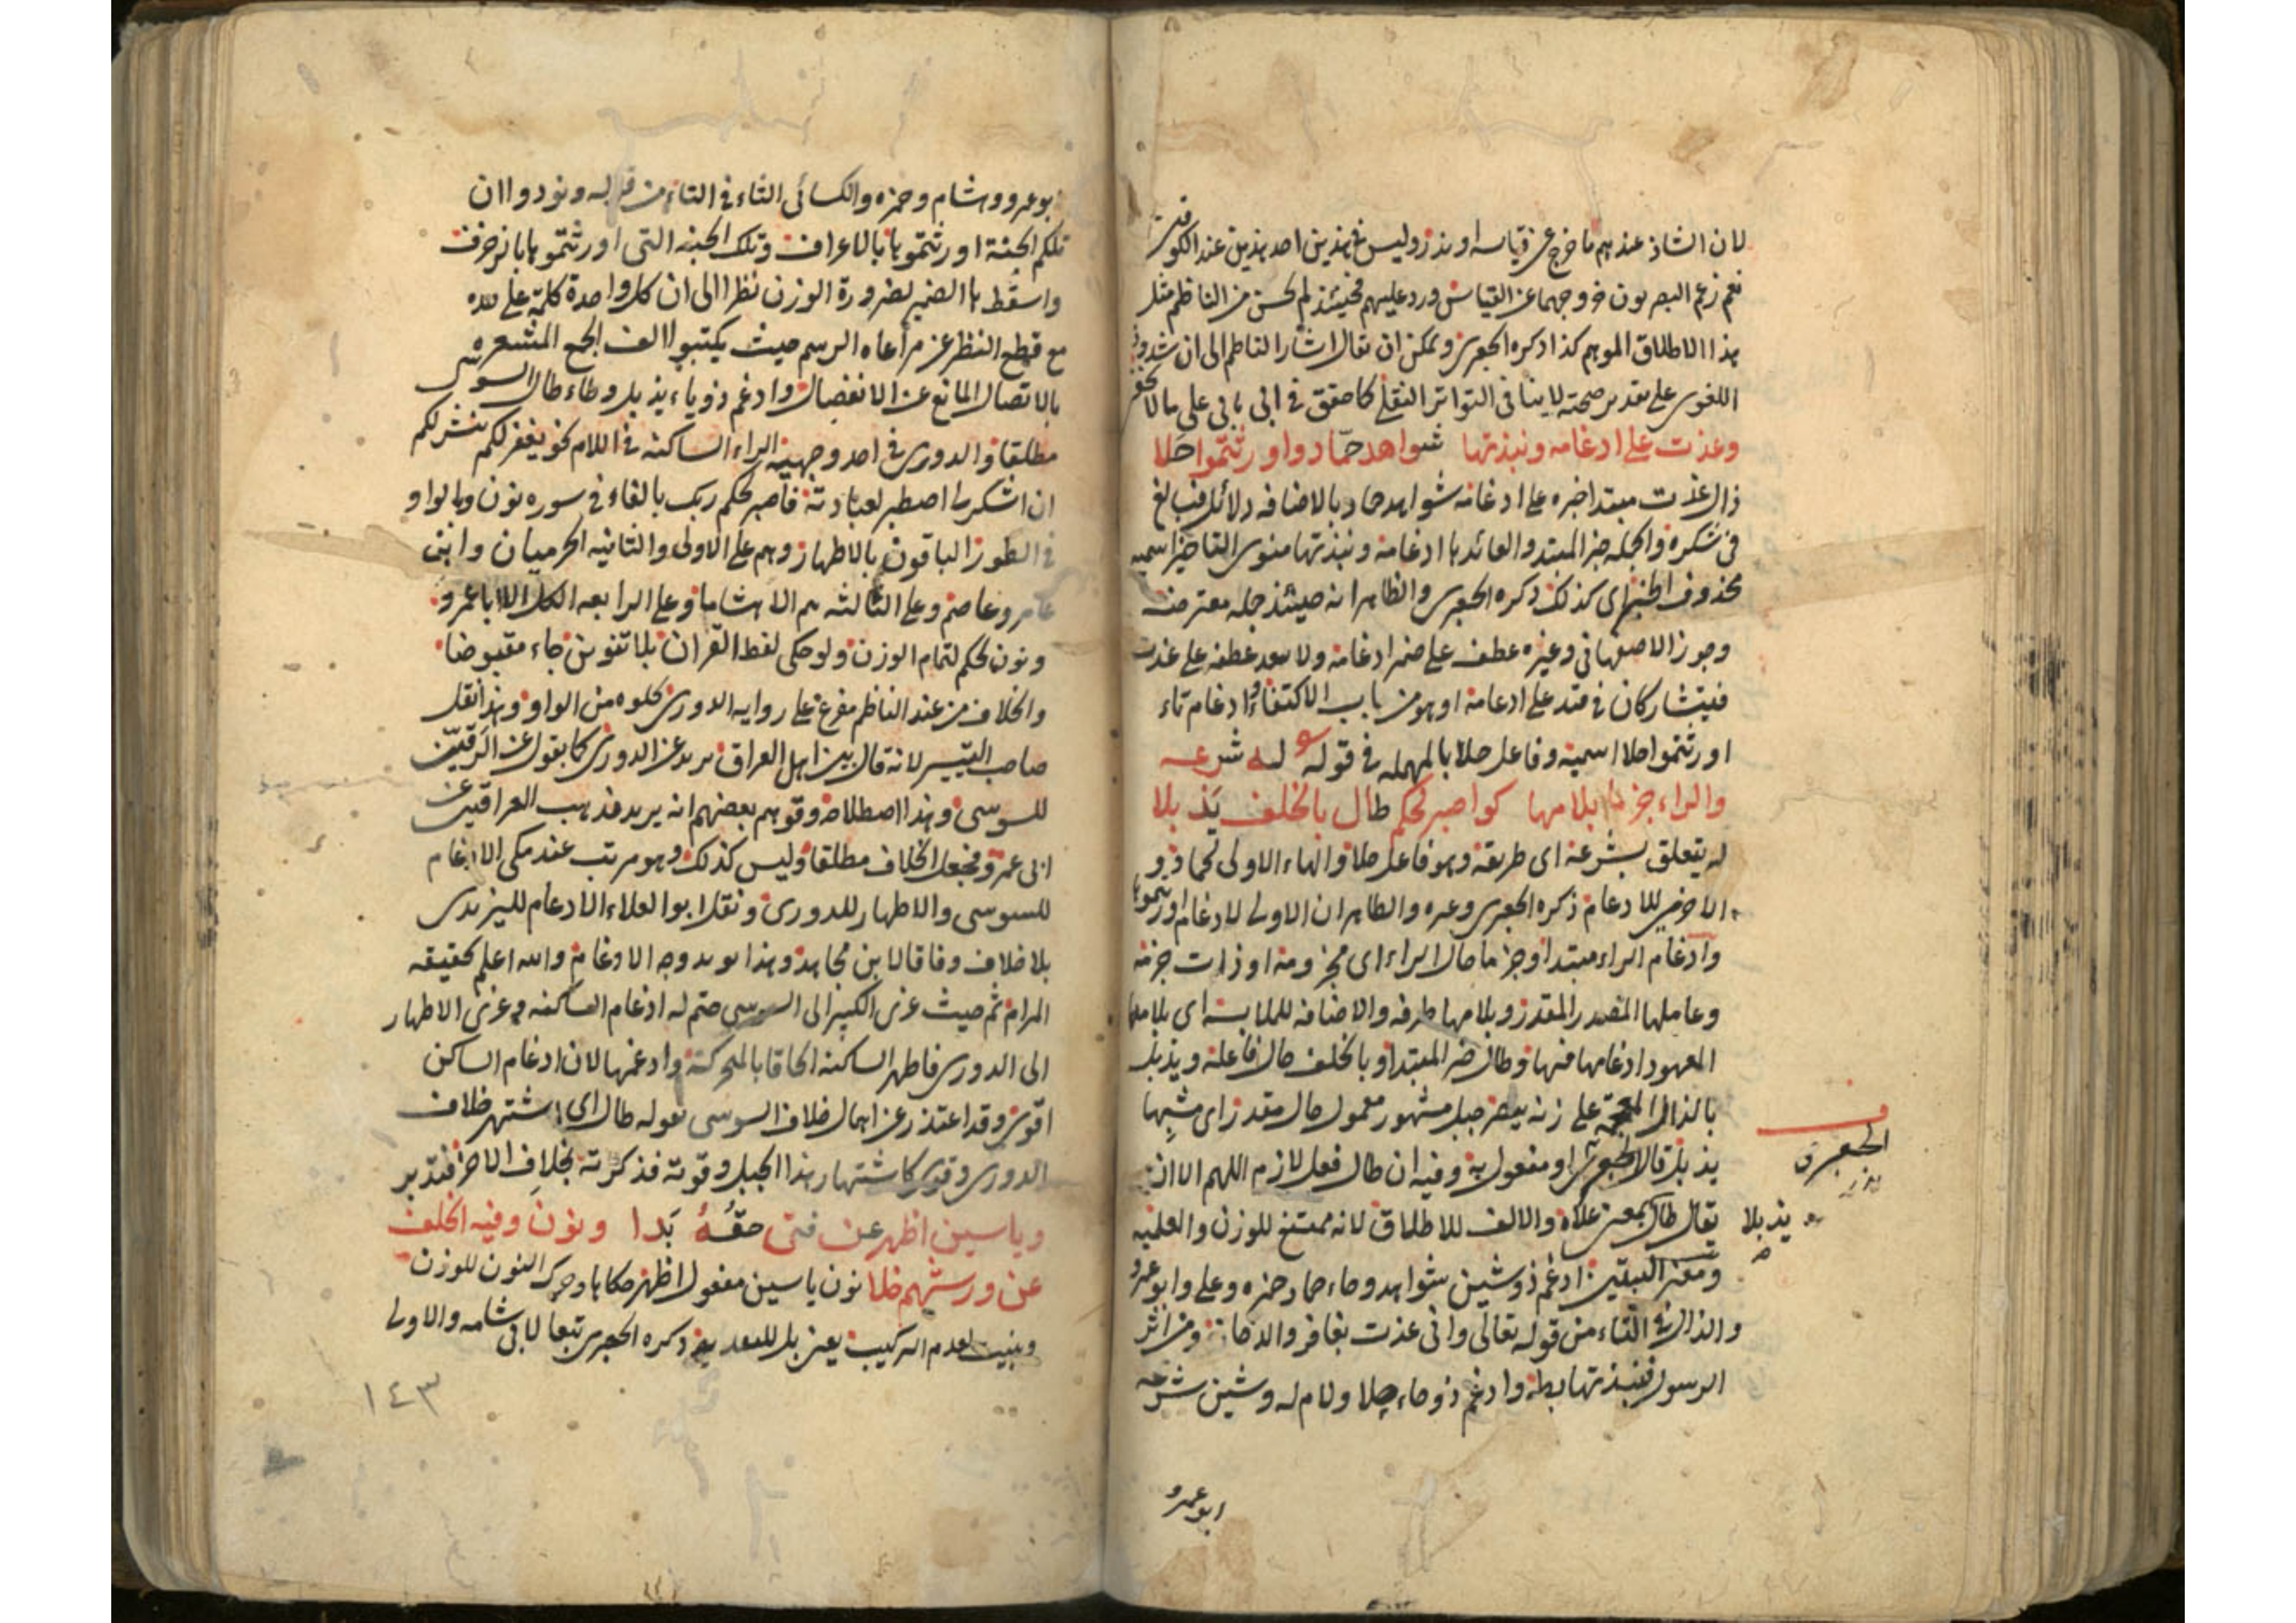 لان الشاذ عندهم ما خرج عن قياسه او ندر وليس في هذين احد هذين عند الكوفيين
نعم زعم البصريون خروجهما عن القياس ورد عليهم فحينئذ لم يحسن من الناظم مثل
هذا الاطلاق الموهم كذا ذكره الجعبري ويمكن ان يقال اشار الناظم الى ان شذوذ
اللغوي على تقدير صحته لا ينافي التواتر النقلي كما حقق في ابى يابى على ما لا يخفى
وعذت على ادغامه ونبذتها شواهد حماد واورثتموا حلا
ذال عذت مبتدا خبره على ادغامه شواهد حماد بالاضافه دلائل مبالغ
في شكره والجمله خبر المبتدا والعائد ها ادغامه ونبذتها منوى التاخير اسميه
محذوف الخبر اي كذلك ذكره الجعبري والظاهر انه حينئذ جمله معترضه
وجوز الاصفهاني وغيره عطف على ضمير ادغامه ولا يبعد عطفه على عذت
فيتشاركان في قيد على ادغامه او هو من باب الاكتفاء وادغام تاء
اورثتموا حلا اسميه وفاعل حلا بالمهمله في قوله له شرعه
والراء جزما بلامها كواصبر لحكم طال بالخلف يذبلا
له يتعلق بشرعه اى طريقه وهو فاعل حلا والهاء الاولى لحماد و
الاخرى للادغام ذكره الجعبري وغيره والظاهر ان الاولى لادغام اورثتموها
وادغام الراء مبتدا وجزما حال الراء اى مجزومه او ذات جزمه
وعاملها المصدر المقدر وبلامها ظرفه والاضافه للملابسه اى بلامها
المعهود ادغامها فيها وطال خبر المبتدا وبالخلف حال فاعله ويذبل
بالذال المعجمة على زنه ينصر جبل مشهور معمول حال مقدر اى مشبها
يذبل قال الجعبري او مفعول به وفيه ان طال فعل لازم اللهم الا ان
يقال طال بمعنى علاه والالف للاطلاق لانه ممتنع للوزن والعلميه
ومعنى البيتين ادغم ذو شين شواهد وحاء حماد حمزه وعلي وابو عمرو
والذال في التاء من قوله تعالى واني عذت بغافر والدخان ومن اثر
الرسول فنبذتها بطه وادغم ذو حاء حلا ولام له وشين شرعه
ابو عمرو
الجعبري
يذبلا
ابو عمرو وهشام وحمزه والكسائى الثاء في التاء من قوله ونودوا ان
تلكم الجنة اورثتموها بالاعراف وتلك الجنه التى اورثتموها بالزخرف
واسقط ها الضمير لضرورة الوزن نظرا الى ان كل واحدة كلمة على حده
مع قطع النظر عن مراعاه الرسم حيث يكتبوا الف الجمع المشعره
بالاتصال المانع عن الانفصال وادغم ذو ياء يذبل وطاء طال السوسى
مطلقا والدورى في احد وجهيه الراء الساكنه في اللام نحو يغفر لكم ينشر لكم
ان اشكر لى اصطبر لعبادته فاصبر لحكم ربك بالفاء في سوره نون وبالواو
في الطور الباقون بالاظهار وهم على الاولى والثانيه الحرميان وابن
عامر وعاصم وعلى الثالثه هم الا هشاما وعلى الرابعه الكل الا ابا عمرو
ونون لحكم لتمام الوزن ولو حكى لفظ القران بلا تنوين جاء مقبوضا
والخلاف من عند الناظم مفرع على روايه الدورى لخلوه من الواو وهذا نقل
صاحب التيسير لانه قال بين اهل العراق يريد عن الدورى كما يقول عن الرقيين
للسوسى وهذا اصطلاحه وتوهم بعضهم انه يريد مذهب العراقيين عن
ابى عمرو فجعل الخلاف مطلقا وليس كذلك وهو مرتب عند مكى الادغام
للسوسى والاظهار للدورى ونقل ابو العلاء الادغام لليزيدى
بلا خلاف وفاقا لابن مجاهد وهذا يويد وجه الادغام والله اعلم بحقيقه
المرام ثم حيث عزى الكبير الى السوسى حتم له ادغام الساكنه وعزى الاظهار
الى الدورى فاظهر الساكنه الحاقا بالمتحركة وادغمها لان ادغام الساكن
اقوى وقد اعتذر عن اهمال خلاف السوسى بقوله طال اى اشتهر خلاف
الدورى وقوى كاشتهار هذا الجبل وقوته فذكرته بخلاف الاخر فتدبر
وياسين اظهر عن فتى حقه بدا ونون وفيه الخلف
عن ورشهم خلا نون ياسين مفعول اظهر حكاها وحرك النون للوزن
وبنيت لعدم التركيب يعني بل للتعديد ذكره الجعبرى تبعا لابى شامه والاولى
١٤٣